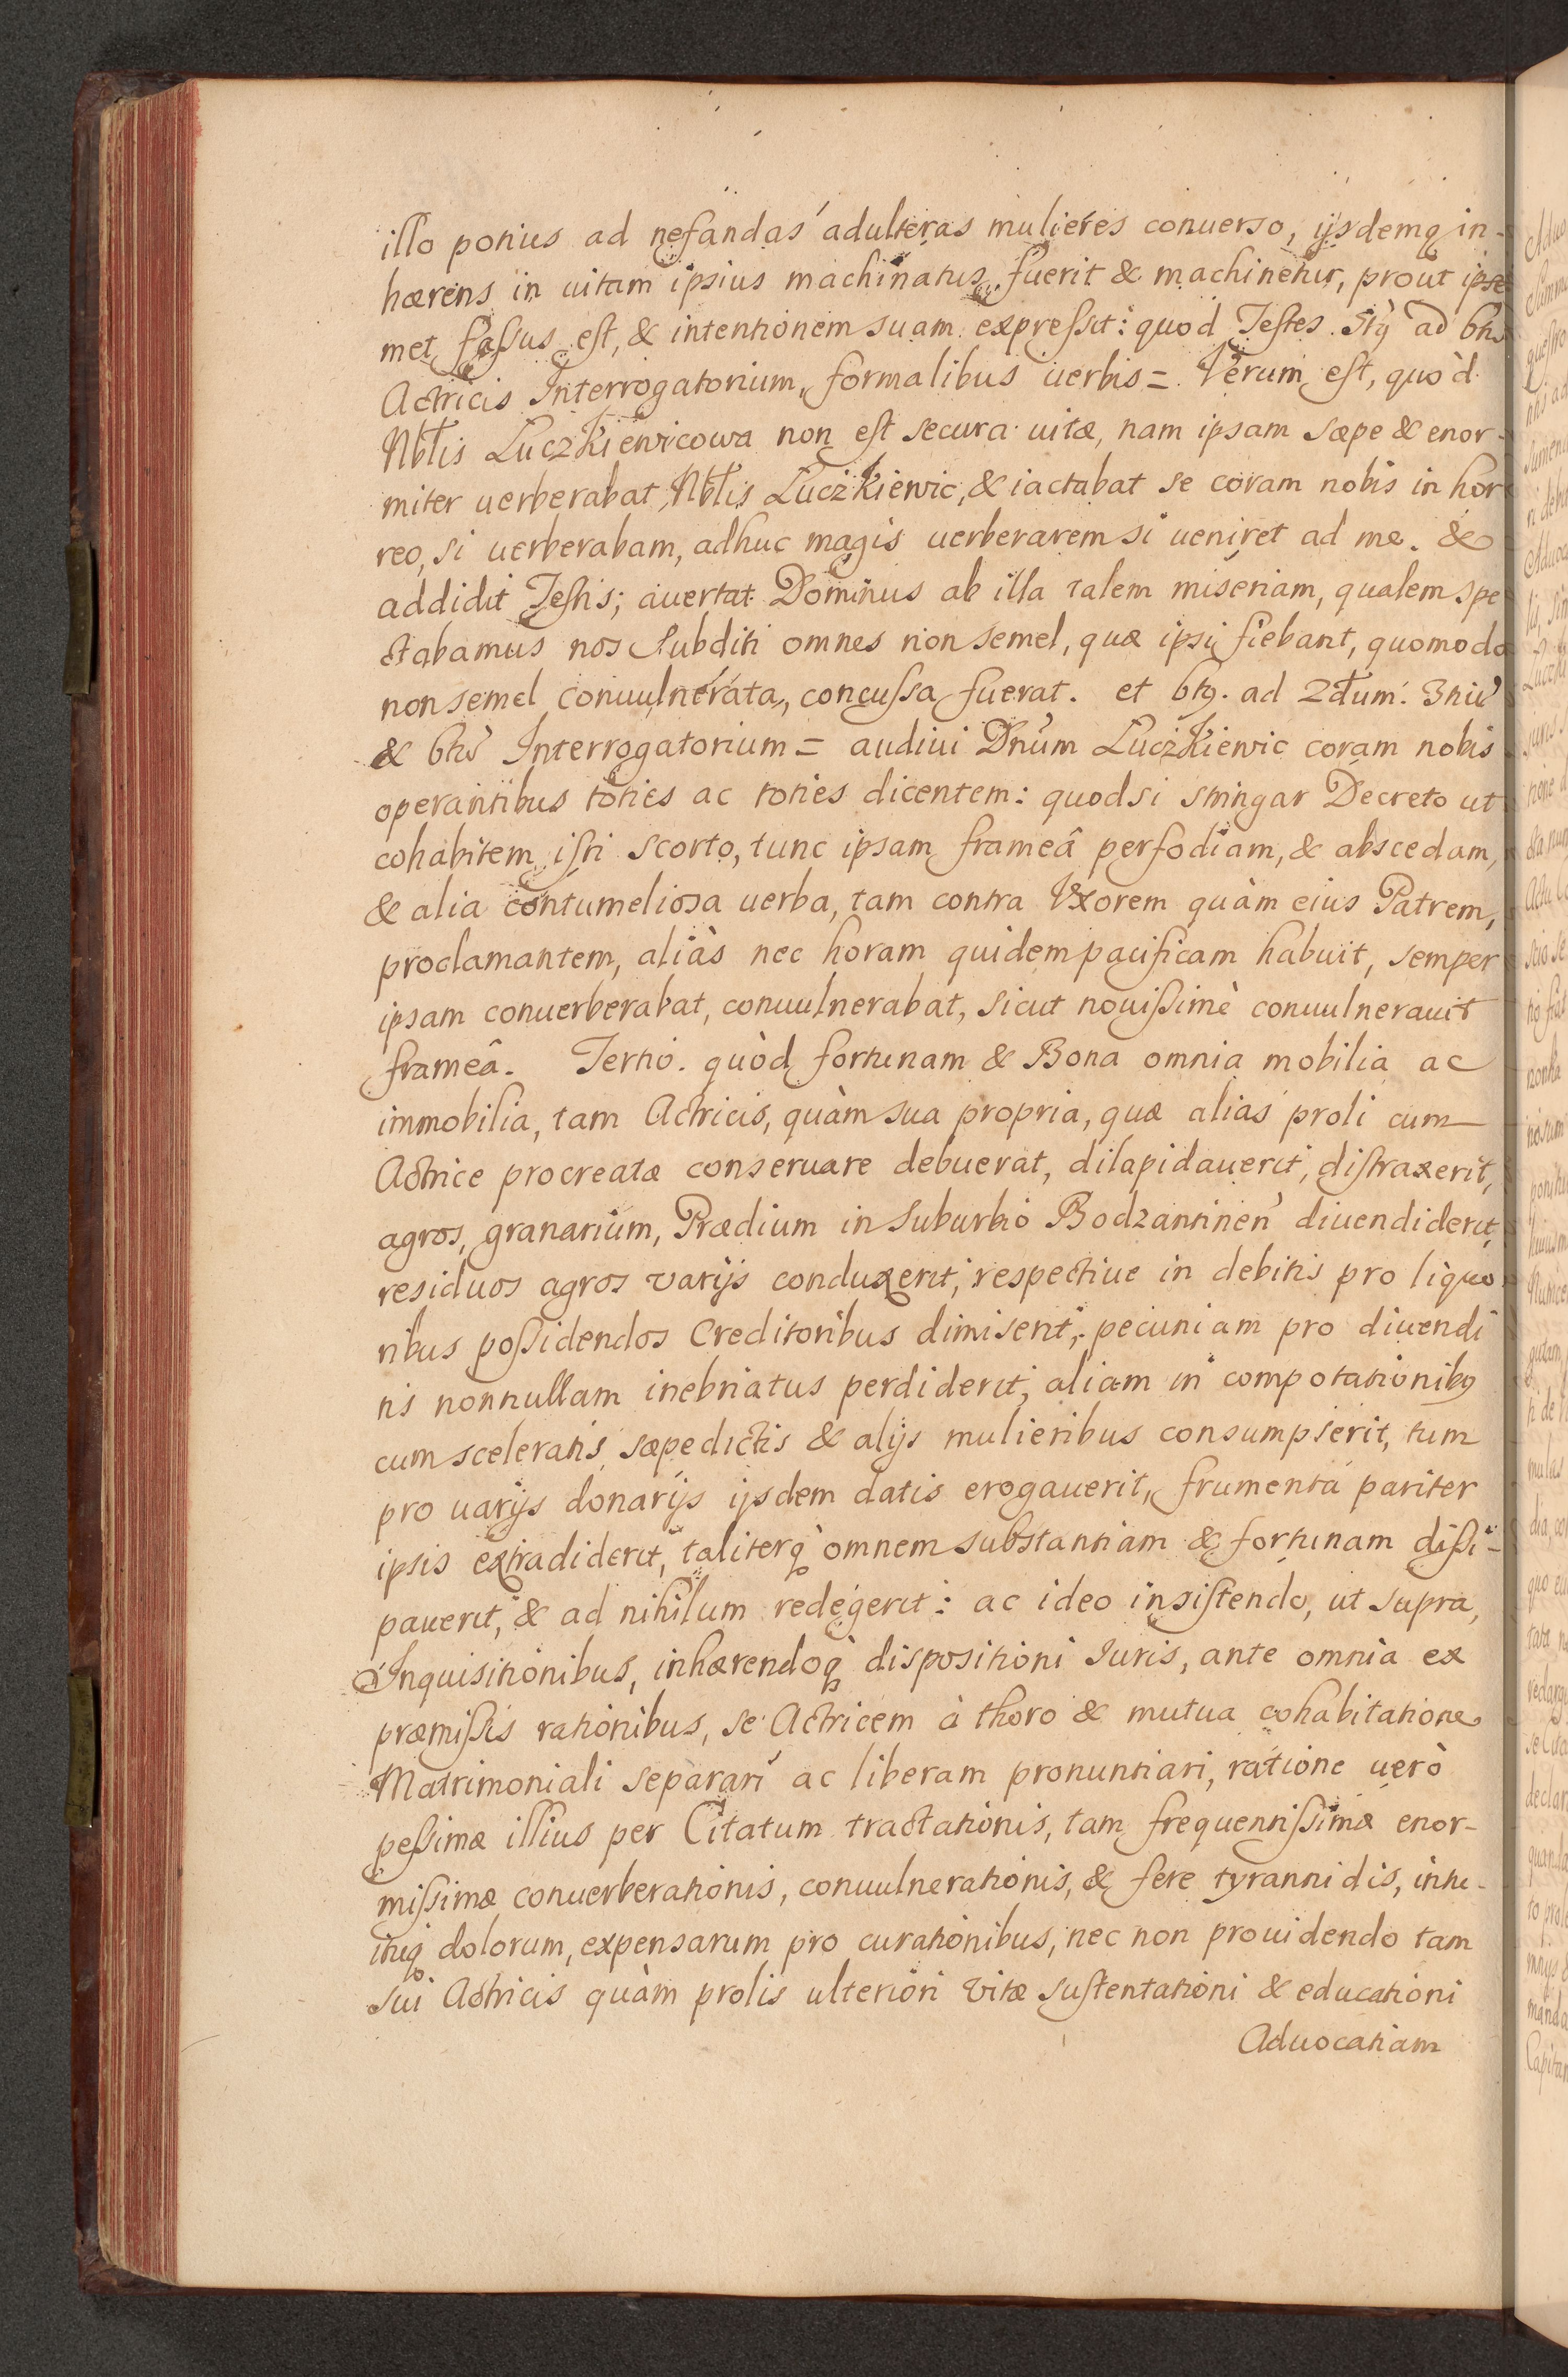 illo potius ad nefandas adulteras mulieres conuerso, ijsdemq in-
hærens in uitam ipsius machinatus fuerit & machinetur, prout ipse
met fassus est, & intentionem suam expressit: quod Testes 5ty ad 6tũ
Actricis Interrogatorium, formalibus uerbis = Verum est, quòd
Nbłis Luczkiewicowa non est secura uitæ, nam ipsam sæpe & enor-
miter uerberabat Nbłis Luczkiewic, & iactabat se coram nobis in hor
reo, si uerberabam, adhuc magis uerberarem si ueniret ad me. &
addidit Testis; auertat Dominus ab illa talem miseriam, qualem spe
ctabamus nos Subditi omnes non semel, quæ ipsi fiebant, quomodo
non semel conuulnerata, concussa fuerat. et 6tq. ad 2dum. 3tiũ
& 6tũ Interrogatorium = audiui Dnũm Luczkiewic coram nobis
operantibus toties ac toties dicentem: quodsi stringar Decreto ut
cohabitem isti scorto, tunc ipsam frameâ perfodiam, & abscedam,
& alia contumeliosa uerba, tam contra Vxorem quàm eius Patrem,
proclamantem, aliàs nec horam quidem pacificam habuit, semper
ipsam conuerberabat, conuulnerabat, sicut nouissimè conuulnerauit
frameâ. Tertio. quòd fortunam & Bona omnia mobilia ac
immobilia, tam Actricis, quàm sua propria, quæ alias proli cum
Actrice procreatæ conseruare debuerat, dilapidauerit, distraxerit,
agros, granarium, Prædium in Suburbio Bodzantinen diuendiderit,
residuos agros varijs conduxerit, respectiue in debitis pro liquo
ribus possidendos Creditoribus dimiserit, pecuniam pro diuendi
tis nonnullam inebriatus perdiderit, aliam in compotationibq
cum sceleratis sæpedictis & alijs mulieribus consumpserit, tum
pro uarijs donarijs ijsdem datis erogauerit, frumenta pariter
ipsis extradiderit, taliterq omnem substantiam & fortunam dissi-
pauerit, & ad nihilum redegerit: ac ideo insistendo, ut supra,
Inquisitionibus, inhærendoq dispositioni Iuris, ante omnia ex
præmissis rationibus, se Actricem à thoro & mutua cohabitatione
Matrimoniali separari ac liberam pronuntiari, ratione uerò
pessimæ illius per Citatum tractationis, tam frequentissimæ enor-
missimæ conuerberationis, conuulnerationis, & fere tyrannidis, intu-
ituq dolorum, expensarum pro curationibus, nec non prouidendo tam
sui Actricis quàm prolis ulteriori vitæ sustentationi & educationi
Aduocatiam